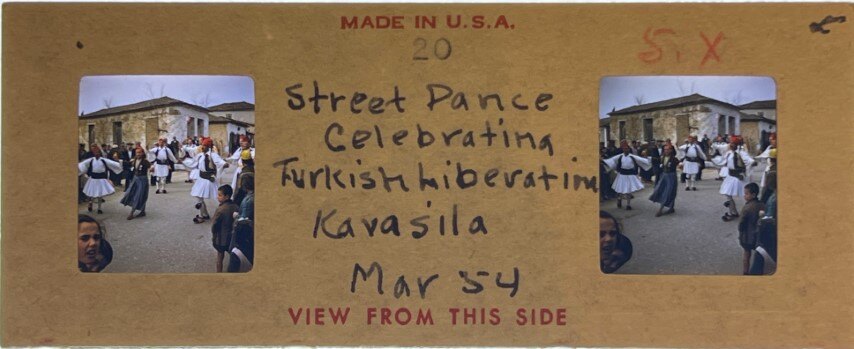 MADE IN U.S.A.
20
S.X
Street Dance
Celebrating
Turkish Liberation
Karasila
Mar 54
VIEW FROM THIS SIDE